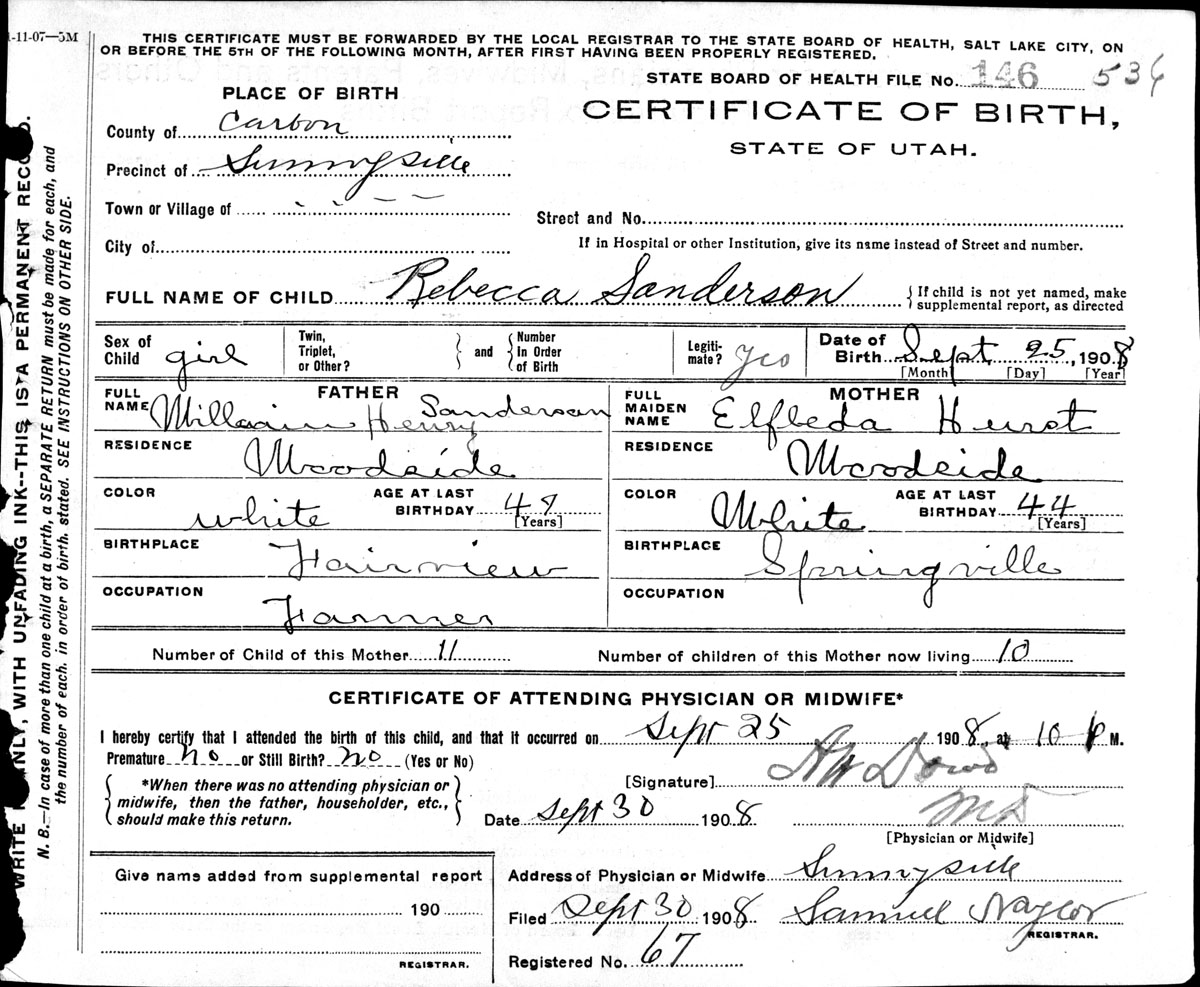 1-11-07—5M
THIS CERTIFICATE MUST BE FORWARDED BY THE LOCAL REGISTRAR TO THE STATE BOARD OF HEALTH, SALT LAKE CITY, ON
OR BEFORE THE 5TH OF THE FOLLOWING MONTH, AFTER FIRST HAVING BEEN PROPERLY REGISTERED.
STATE BOARD OF HEALTH FILE NO. 146 536
PLACE OF BIRTH
CERTIFICATE OF BIRTH,
STATE OF UTAH.
County of Carbon
Precinct of Sunnyside
Town or Village of
Street and No.
City of
If in Hospital or other Institution, give its name instead of Street and number.
FULL NAME OF CHILD Rebecca Sanderson {If child is not yet named, make
supplemental report, as directed
Sex of Child girl Twin, Triplet, or Other? and Number In Order of Birth Legiti-mate? Yes Date of Birth Sept 25, 1908
[Month] [Day] [Year]
FATHER
FULL NAME William Henry Sanderson
RESIDENCE Woodside
COLOR white AGE AT LAST BIRTHDAY 47 [Years]
BIRTHPLACE Fairview
OCCUPATION Farmer
MOTHER
FULL MAIDEN NAME Elfleda Hurst
RESIDENCE Woodside
COLOR White AGE AT LAST BIRTHDAY 44 [Years]
BIRTHPLACE Springville
OCCUPATION
Number of Child of this Mother 11 Number of children of this Mother now living 10
CERTIFICATE OF ATTENDING PHYSICIAN OR MIDWIFE*
I hereby certify that I attended the birth of this child, and that it occurred on Sept 25 1908, at 10 P M.
Premature no or Still Birth? no (Yes or No)
[Signature] Dowd
*When there was no attending physician or
midwife, then the father, householder, etc.,
should make this return.
Date Sept 30 1908 MD
[Physician or Midwife]
Give name added from supplemental report
190
REGISTRAR.
Address of Physician or Midwife Sunnyside
Filed Sept 30 1908 Samuel Naylor
REGISTRAR.
Registered No. 67
WRITE PLAINLY, WITH UNFADING INK--THIS IS A PERMANENT RECORD.
N. B.—In case of more than one child at a birth, a SEPARATE RETURN must be made for each, and
the number of each, in order of birth, stated. SEE INSTRUCTIONS ON OTHER SIDE.